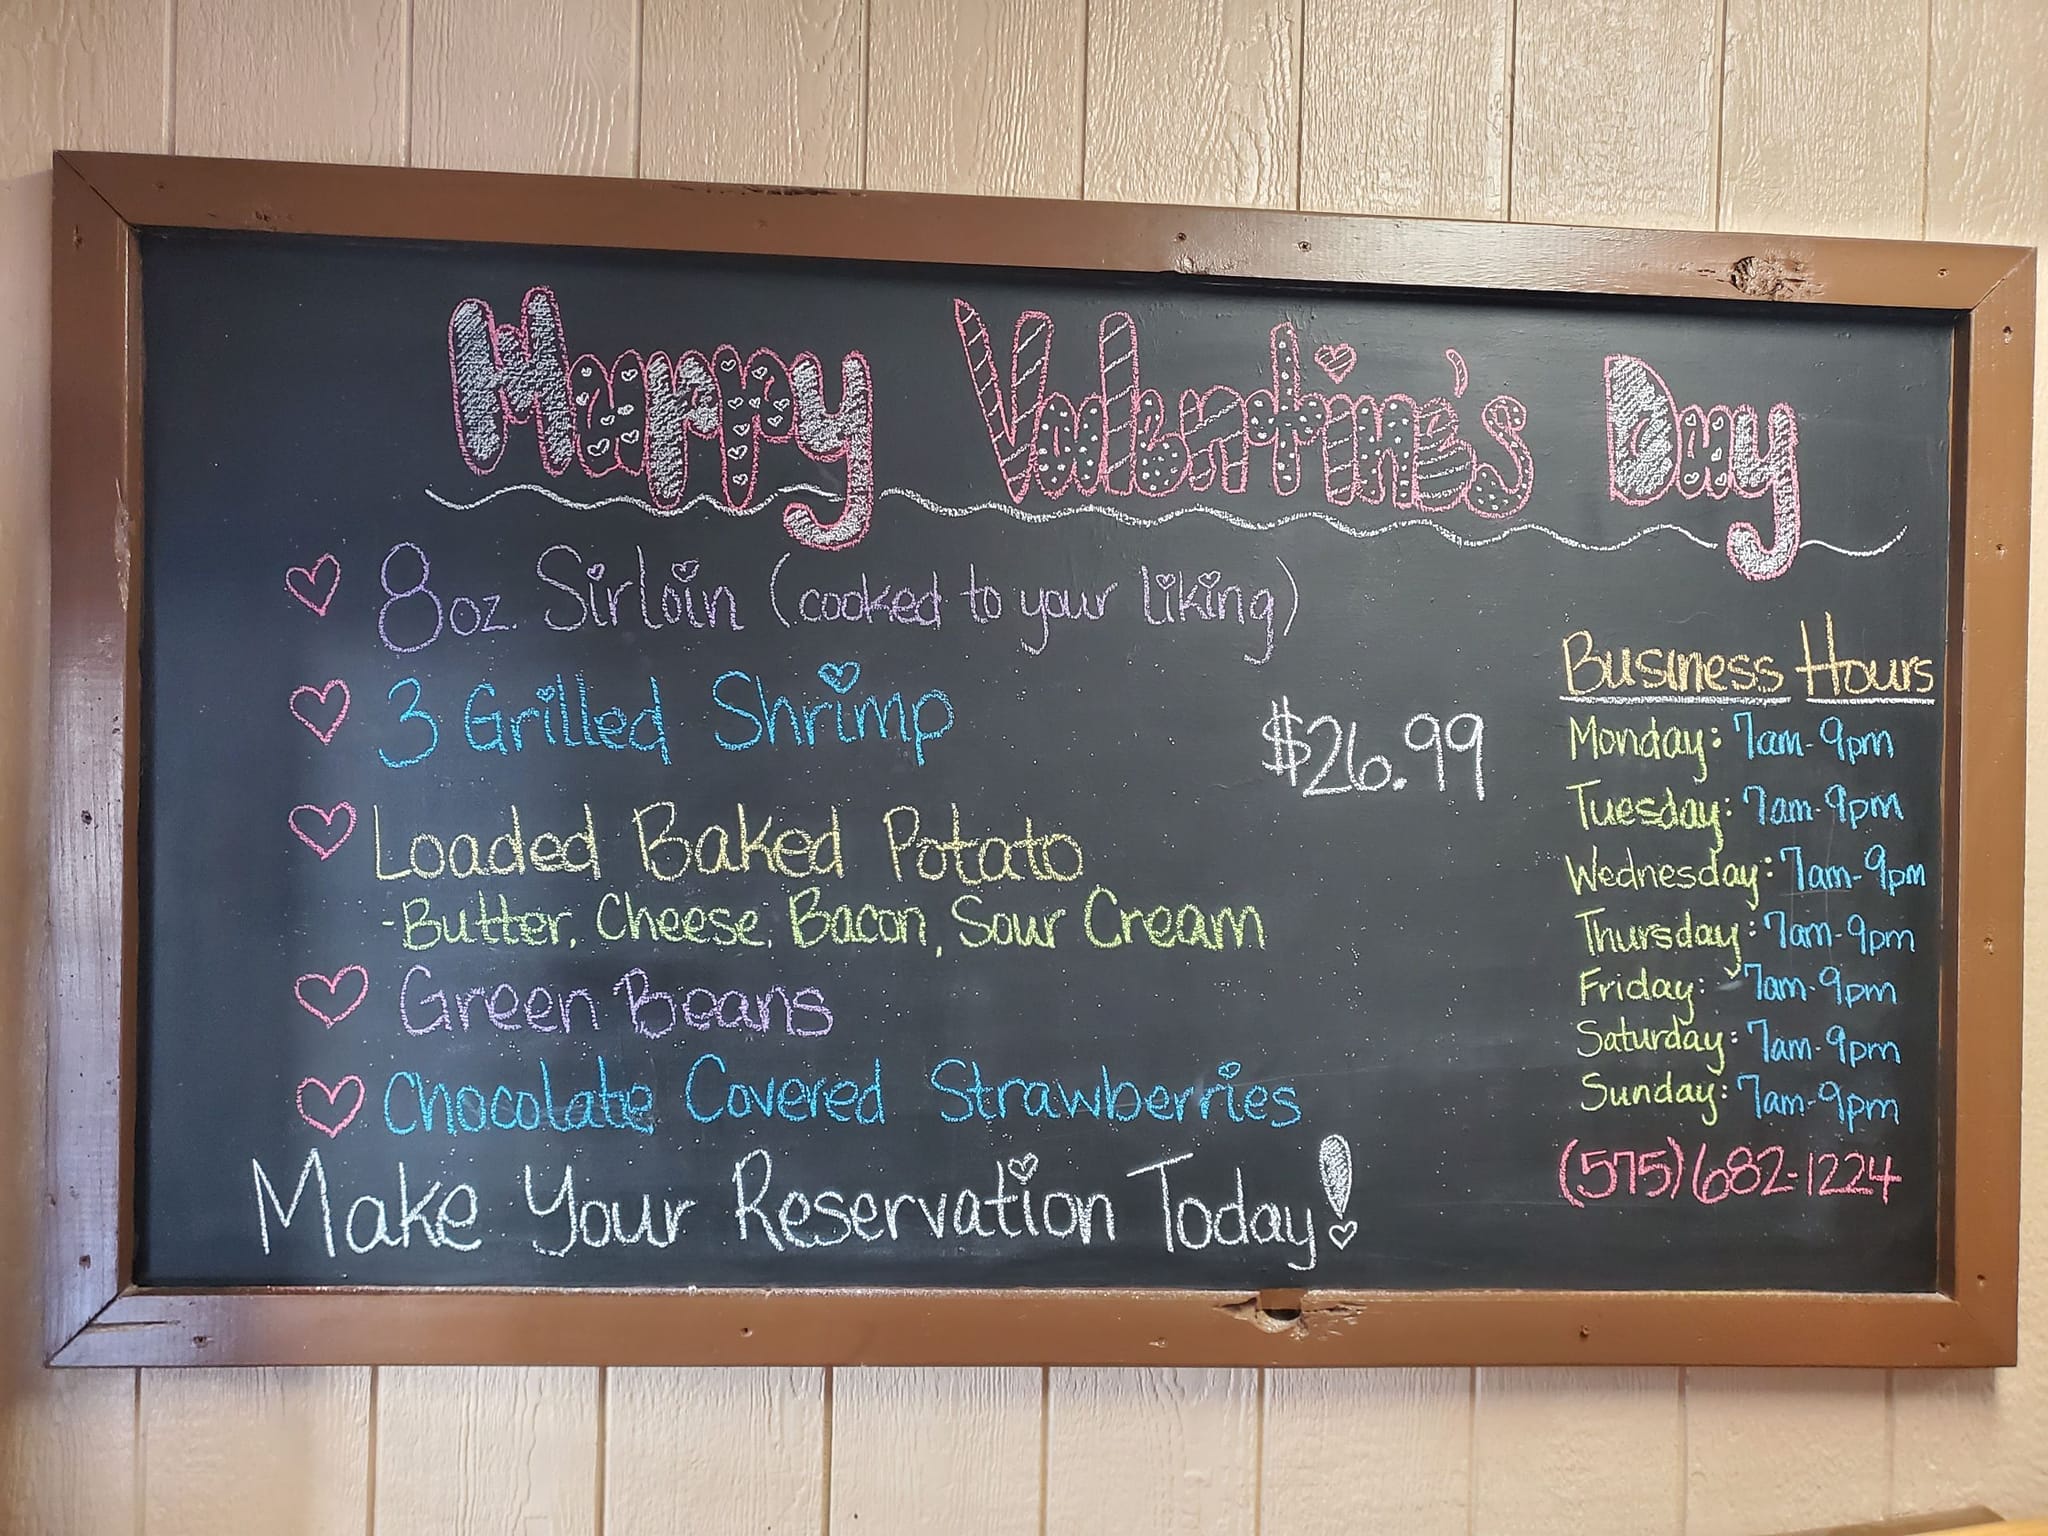 Happy Valentine's Day
8oz. Sirloin (cooked to your liking)
3 Grilled Shrimp
$26.99
Loaded Baked Potato
-Butter, Cheese, Bacon, Sour Cream
Green Beans
Chocolate Covered Strawberries
Make Your Reservation Today!
Business Hours
Monday: 7am-9pm
Tuesday: 7am-9pm
Wednesday: 7am-9pm
Thursday: 7am-9pm
Friday: 7am-9pm
Saturday: 7am-9pm
Sunday: 7am-9pm
(575)682-1224